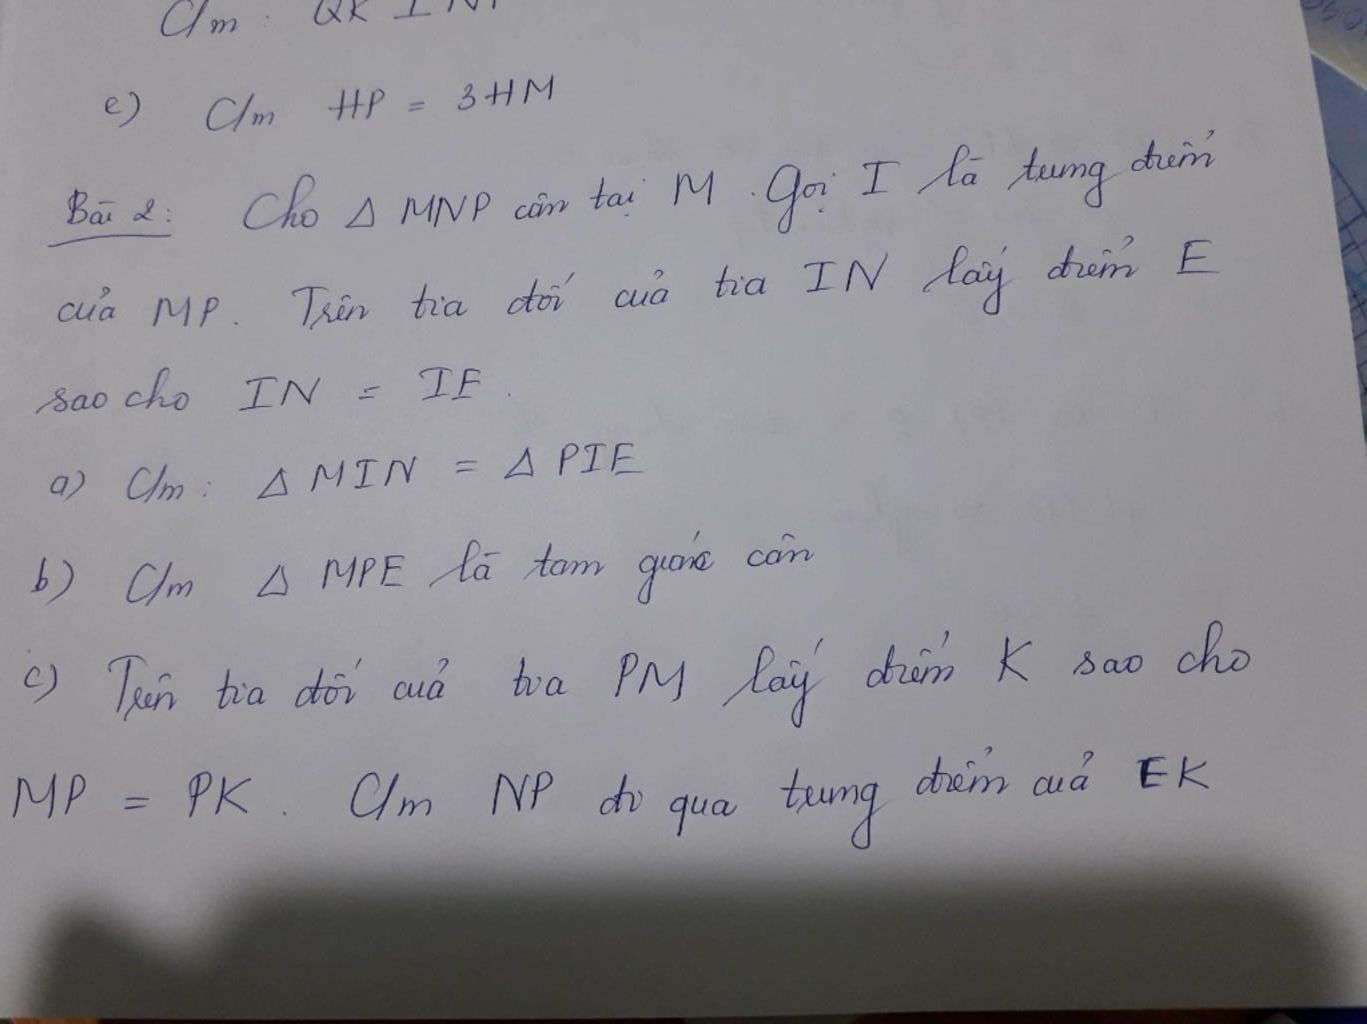 C/m : QK ⊥ NP
e) C/m HP = 3HM
Bài 2: Cho Δ MNP cân tại M. Gọi I là trung điểm
của MP. Trên tia đối của tia IN lấy điểm E
sao cho IN = IE.
a) C/m : Δ MIN = Δ PIE
b) C/m Δ MPE là tam giác cân
c) Trên tia đối của tia PM lấy điểm K sao cho
MP = PK. C/m NP đi qua trung điểm của EK